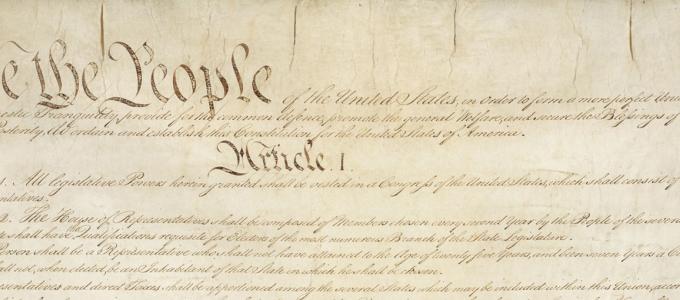 e the People of the United States, in Order to form a more perfect Uni
estic Tranquility, provide for the common defence, promote the general Welfare, and secure the Blessings of
osterity, do ordain and establish this Constitution for the United States of America.
Article. I.
1. All legislative Powers herein granted shall be vested in a Congress of the United States, which shall consist of
ntatives.
2. The House of Representatives shall be composed of Members chosen every second Year by the People of the several
shall have the Qualifications requisite for Electors of the most numerous Branch of the State Legislature.
Person shall be a Representative who shall not have attained to the Age of twenty five Years, and been seven Years a C
all not, when elected, be an Inhabitant of that State in which he shall be chosen.
esentatives and direct Taxes shall be apportioned among the several States which may be included within this Union, accor